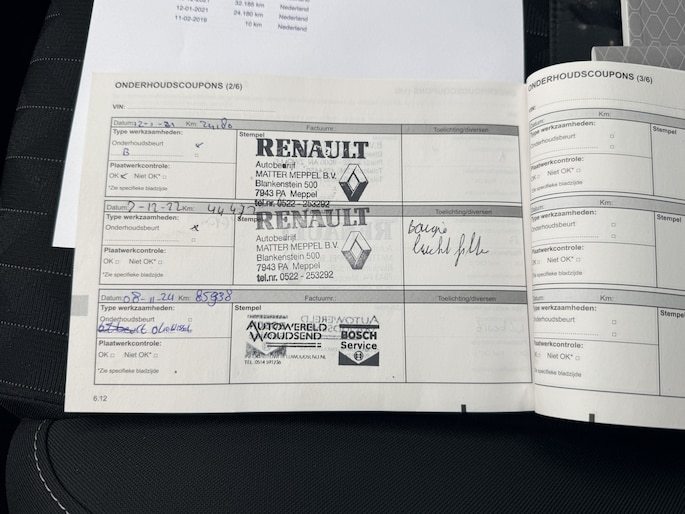 32.185 km Nederland
12-01-2021 24.180 km Nederland
11-02-2018 10 km Nederland
ONDERHOUDSCOUPONS (2/6)
VIN:
Datum: 12-1-21 Km: 24180 Factuurnr.: Toelichting/diversen
Type werkzaamheden: Stempel
Onderhoudsbeurt
B
Plaatwerkcontrole:
OK Niet OK*
*Zie specifieke bladzijde
RENAULT
Autobedrijf
MATTER MEPPEL B.V.
Blankenstein 500
7943 PA Meppel
tel.nr. 0522-253292
Datum: 7-12-22 Km: 44477 Toelichting/diversen
Type werkzaamheden:
Onderhoudsbeurt
Plaatwerkcontrole:
OK Niet OK*
*Zie specifieke bladzijde
RENAULT
Autobedrijf
MATTER MEPPEL B.V.
Blankenstein 500
7943 PA Meppel
tel.nr. 0522 - 253292
Datum: 08-11-24 Km: 85938 Factuurnr.: Toelichting/diversen
Type werkzaamheden: Stempel
Onderhoudsbeurt
Plaatwerkcontrole:
OK Niet OK*
*Zie specifieke bladzijde
AUTOWERELD
WOUDSEND
BOSCH
Service
6.12
ONDERHOUDSCOUPONS (3/6)
VIN:
Datum: Km:
Type werkzaamheden: Stempel
Onderhoudsbeurt
Plaatwerkcontrole:
OK Niet OK*
*Zie specifieke bladzijde
Datum: Km:
Type werkzaamheden: Stempel
Onderhoudsbeurt
Plaatwerkcontrole:
OK Niet OK*
*Zie specifieke bladzijde
Datum: Km:
Type werkzaamheden: Stempel
Onderhoudsbeurt
Plaatwerkcontrole:
OK Niet OK*
*Zie specifieke bladzijde